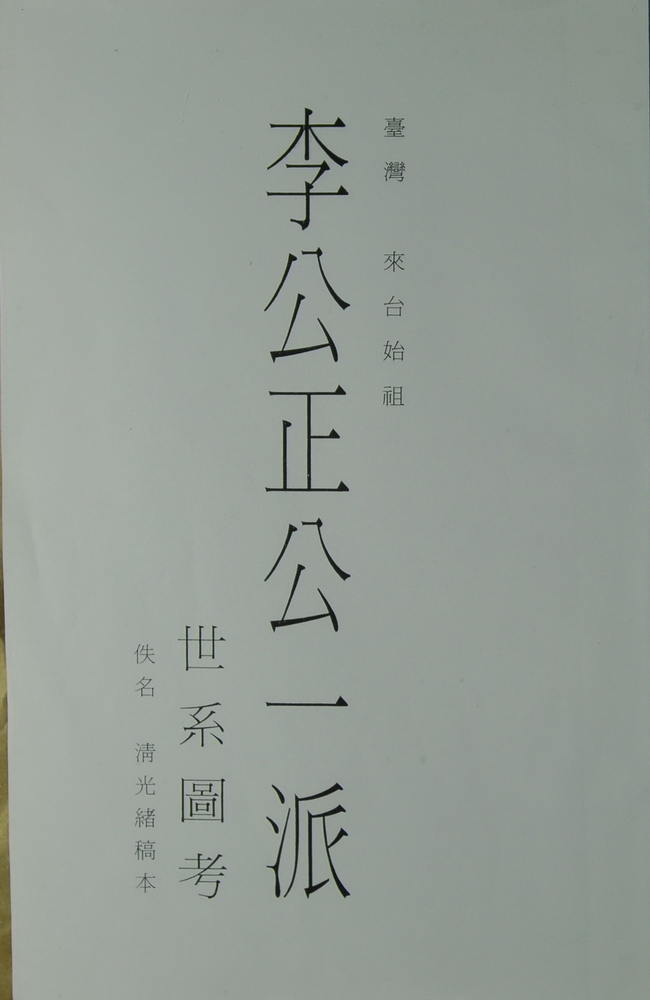 臺灣 來台始祖
李公正公一派
世系圖考
佚名 清光緒稿本